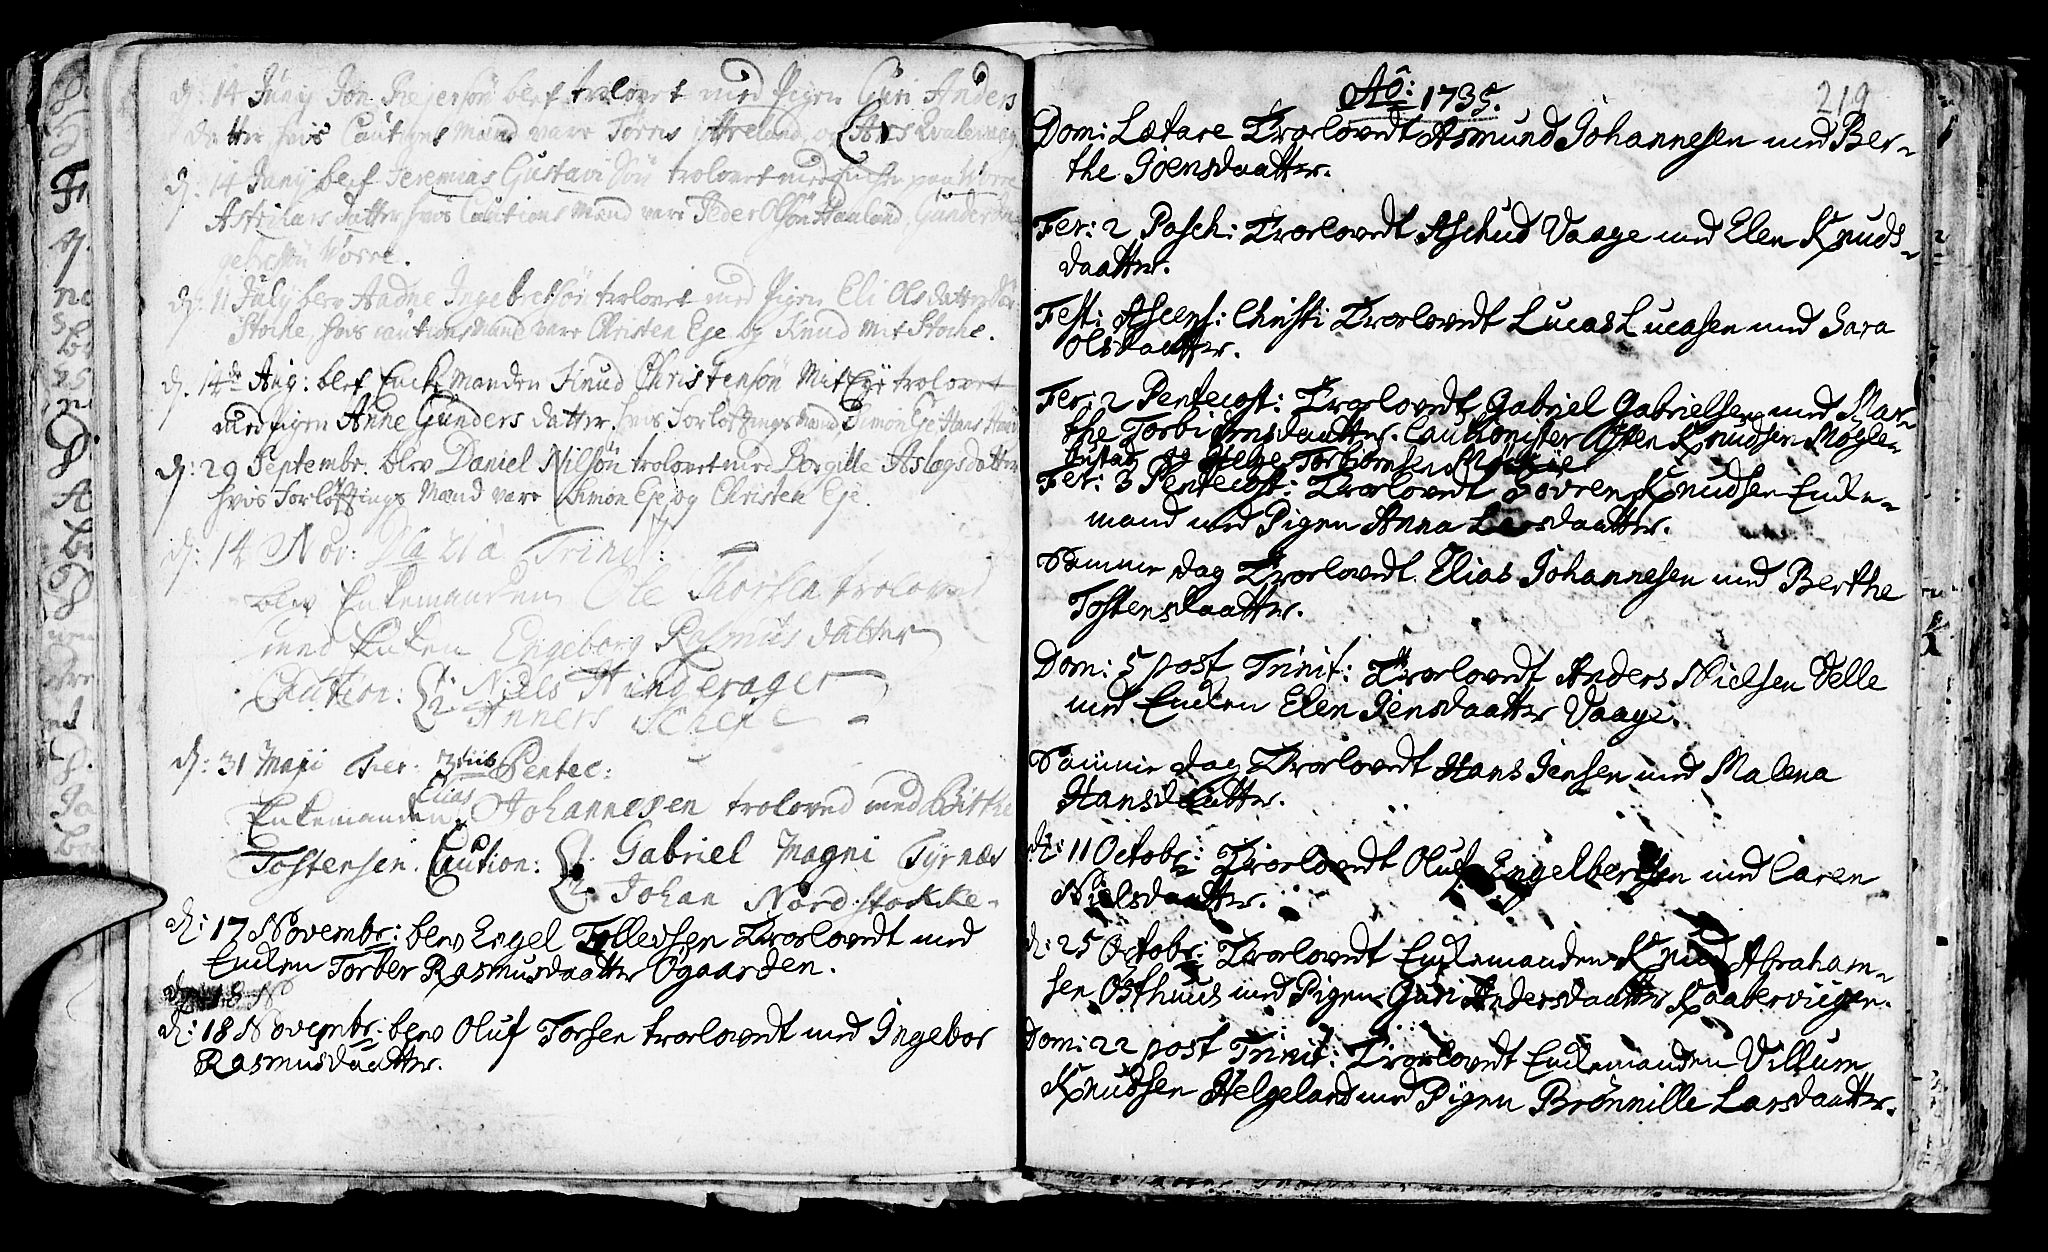 d: 14 Junij Jon Rejersön blef trolovet med Pigen Guri Anders
datter, hvis Cautions Mand vare Törres Areland og Anders
d. 14 Junij blef Jeremias Gustavi Sön trolovet med paa Vorre
datter hvis Cautions Mand vare Peder Olsön Haaland, Gunder
Vorre.
d: 11 July blev Aadne Ingebretsön trolovet med Pigen Eli Olsdatter
Stocke, hvis cautions Mand vare Christen Eje og Knud Mit Stocke.
d. 14de Aug: blef Enke Manden Knud Christensön Mit Eije trolovet
med Pigen Anne Gunders datter, hvis Forlöftings Mand, Simon Eje Hans
d: 29 Septembr. blev Daniel Nilsön trolovet med Borgille Aslags datter
hvis Forlöftings Mand vare Simon Eje og Christen Eje.
d: 14 Nov: 21a Trinit:
blev Enkemanden Ole Thorsen trolovet
med Enken Engeborg Rasmus datter
Caution: 1. Niels Hinderager
2. Anners Scheie
d: 31 Maji Fer: 3tiis Pentec:
Enkemanden Elias Johannesen troloved med Birthe
Tostensen. Caution: 1. Gabriel Magni Tyrnæs
2. Johan Nordstokke.
d: 17 Novembr: blev Engel Tollevsen Troelovedt med
Encken Torber Rasmusdaatter Ögaarden.
d: 18 N
d: 18 Novembr: blev Oluf Torsen troelovedt med Ingebor
Rasmusdaatter.
Aõ: 1735.
219
Dom: Lætare Troelovedt Asmund Johannesen med Ber-
the Joensdaatter.
Fer: 2 Pasch: Troelovedt Aschud Vaage med Elen Knuds-
daatter.
Fest: Ascens: Christi Troelovedt Lucas Lucasen med Sara
Olsdaatter.
Fer: 2 Pentecost: Troelovedt Gabriel Gabrielsen med Mar-
the Torbiörnsdaatter. Cautionister Osten Knudsen Mögle-
bustad og Helge Torbiörnsen
Fer: 3 Pentecost: Troelovedt Sövren Knudsen Encke-
mand med Pigen Anna Larsdaatter.
Samme dag Troelovedt Elias Johannesen med Berthe
Tostensdaatter.
Dom: 5 post Trinit: Troelovedt Anders Nielsen Velle
med Encken Elen Jensdaatter Vaage.
Samme dag Troelovedt Hans Jensen med Malena
Hansdaatter.
d: 11 Octobr: Troelovedt Oluf Engelbertsen med Caren
Nielsdaatter.
d: 25 Octobr: Troelovedt Enckemanden Knud Abraham-
sen Osthuus med Pigen Guri Andersdaatter Kaaberviigen.
Dom: 22 post Trinit: Troelovedt Enckemanden Villum
Knudsen Helgeland med Pigen Brönnille Larsdaatter.